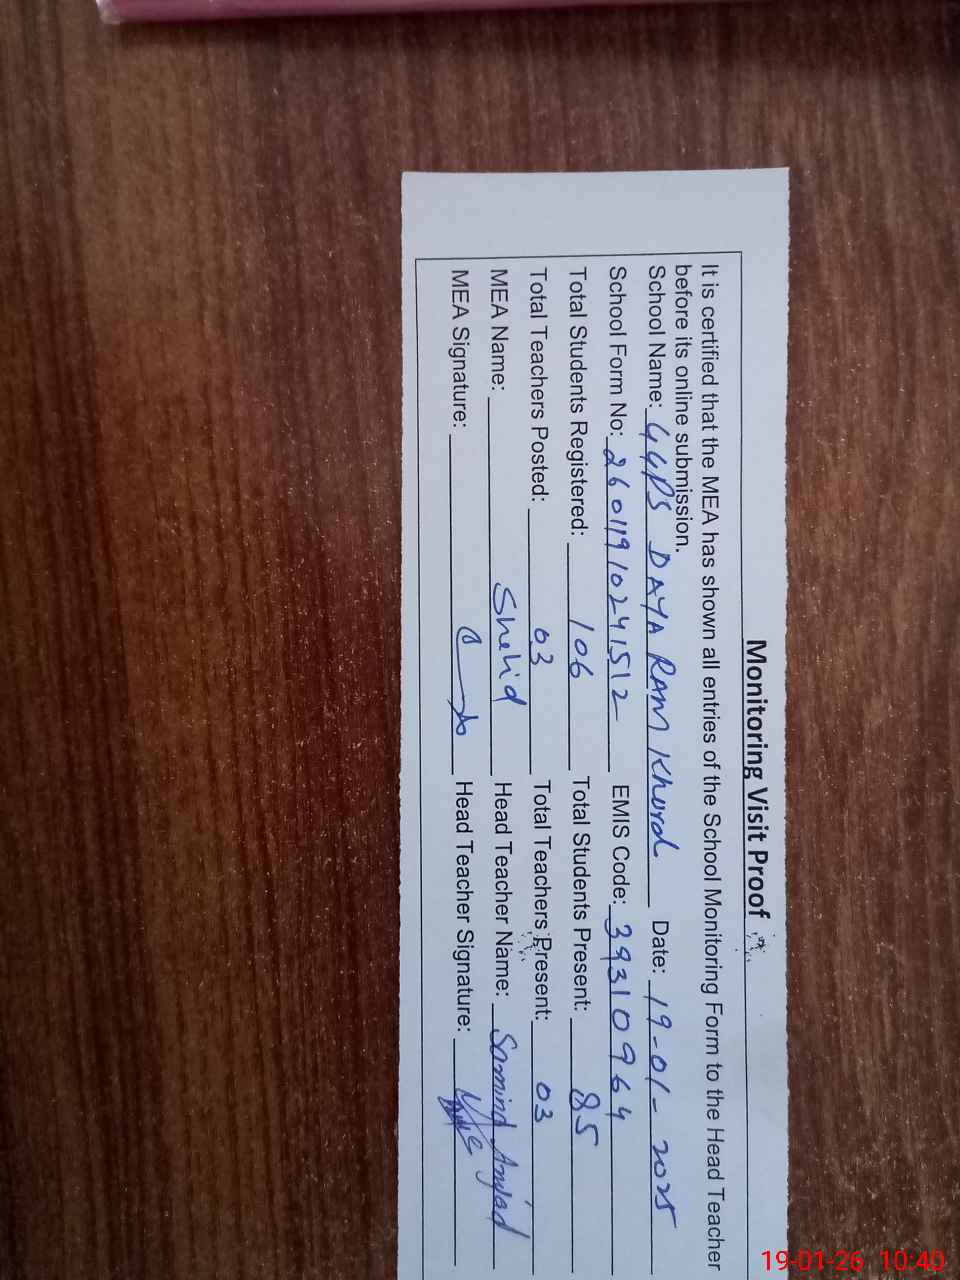 Monitoring Visit Proof
It is certified that the MEA has shown all entries of the School Monitoring Form to the Head Teacher
before its online submission.
School Name: GGPS DAYA RAM Khurd Date: 19-01-2025
School Form No: 26011910241512 EMIS Code: 39310964
Total Students Registered: 106 Total Students Present: 85
Total Teachers Posted: 03 Total Teachers Present: 03
MEA Name: Shahid Head Teacher Name: Amjad
MEA Signature: Head Teacher Signature:
19-01-26 10:40